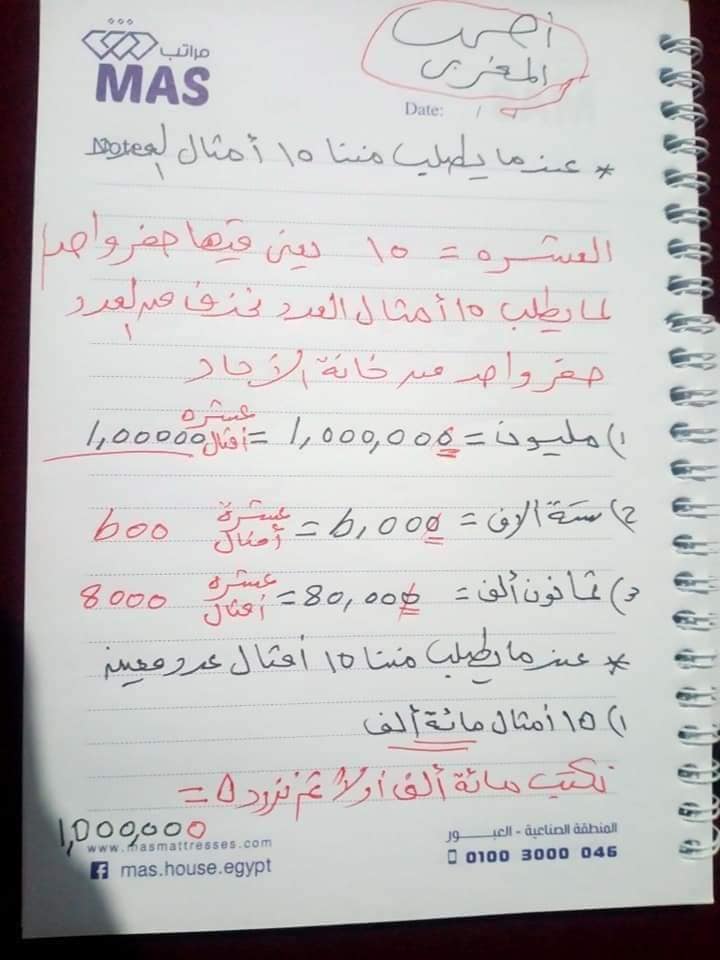 مراتب
MAS
المغربى
Date: / /
Notes
* عندما يطلب مننا 10 أمثال
العشره = 10 يعنى فيها صفر واحد
لما يطلب 10 أمثال العدد نحذف من العدد
صفر واحد من خانة الآحاد
1) مليون = 1,000,000 = عشره أمثال 1,00000
2) ستة آلاف = 6,000 = عشرة أمثال 600
3) ثمانون ألف = 80,000 = عشره أمثال 8000
* عندما يطلب مننا 10 أمثال عدد معين
1) 10 أمثال مائة ألف
نكتب مائة ألف أولا ثم نزود 0 =
1,000,000
www.masmattresses.com
mas.house.egypt
المنطقة الصناعية - العبـــور
0100 3000 046